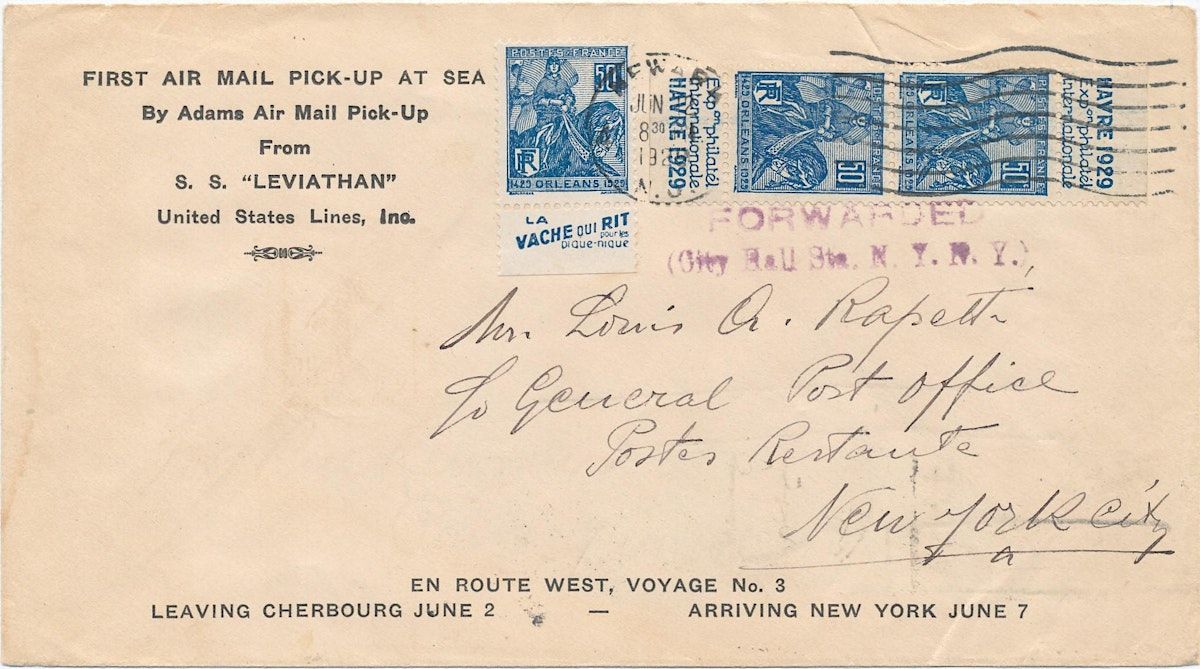 FIRST AIR MAIL PICK-UP AT SEA
By Adams Air Mail Pick-Up
From
S. S. "LEVIATHAN"
United States Lines, Inc.
POSTES-FRANCE
50
RF
1429 ORLEANS 1929
LA
VACHE QUI RIT
pour les
pique-nique
JUN
8 30
192
N.J.
Expon philatél
Internationale
HAVRE 1929
POSTES-FRANCE
50
RF
1429 ORLEANS 1929
POSTES-FRANCE
50
RF
1429 ORLEANS 1929
HAVRE 1929
Expon philatél
Internationale
FORWARDED
(City Hall Sta. N. Y. N. Y.)
Mr. Louis A. Rapetti
c/o General Post Office
Postes Restante
New York City
EN ROUTE WEST, VOYAGE No. 3
LEAVING CHERBOURG JUNE 2 — ARRIVING NEW YORK JUNE 7